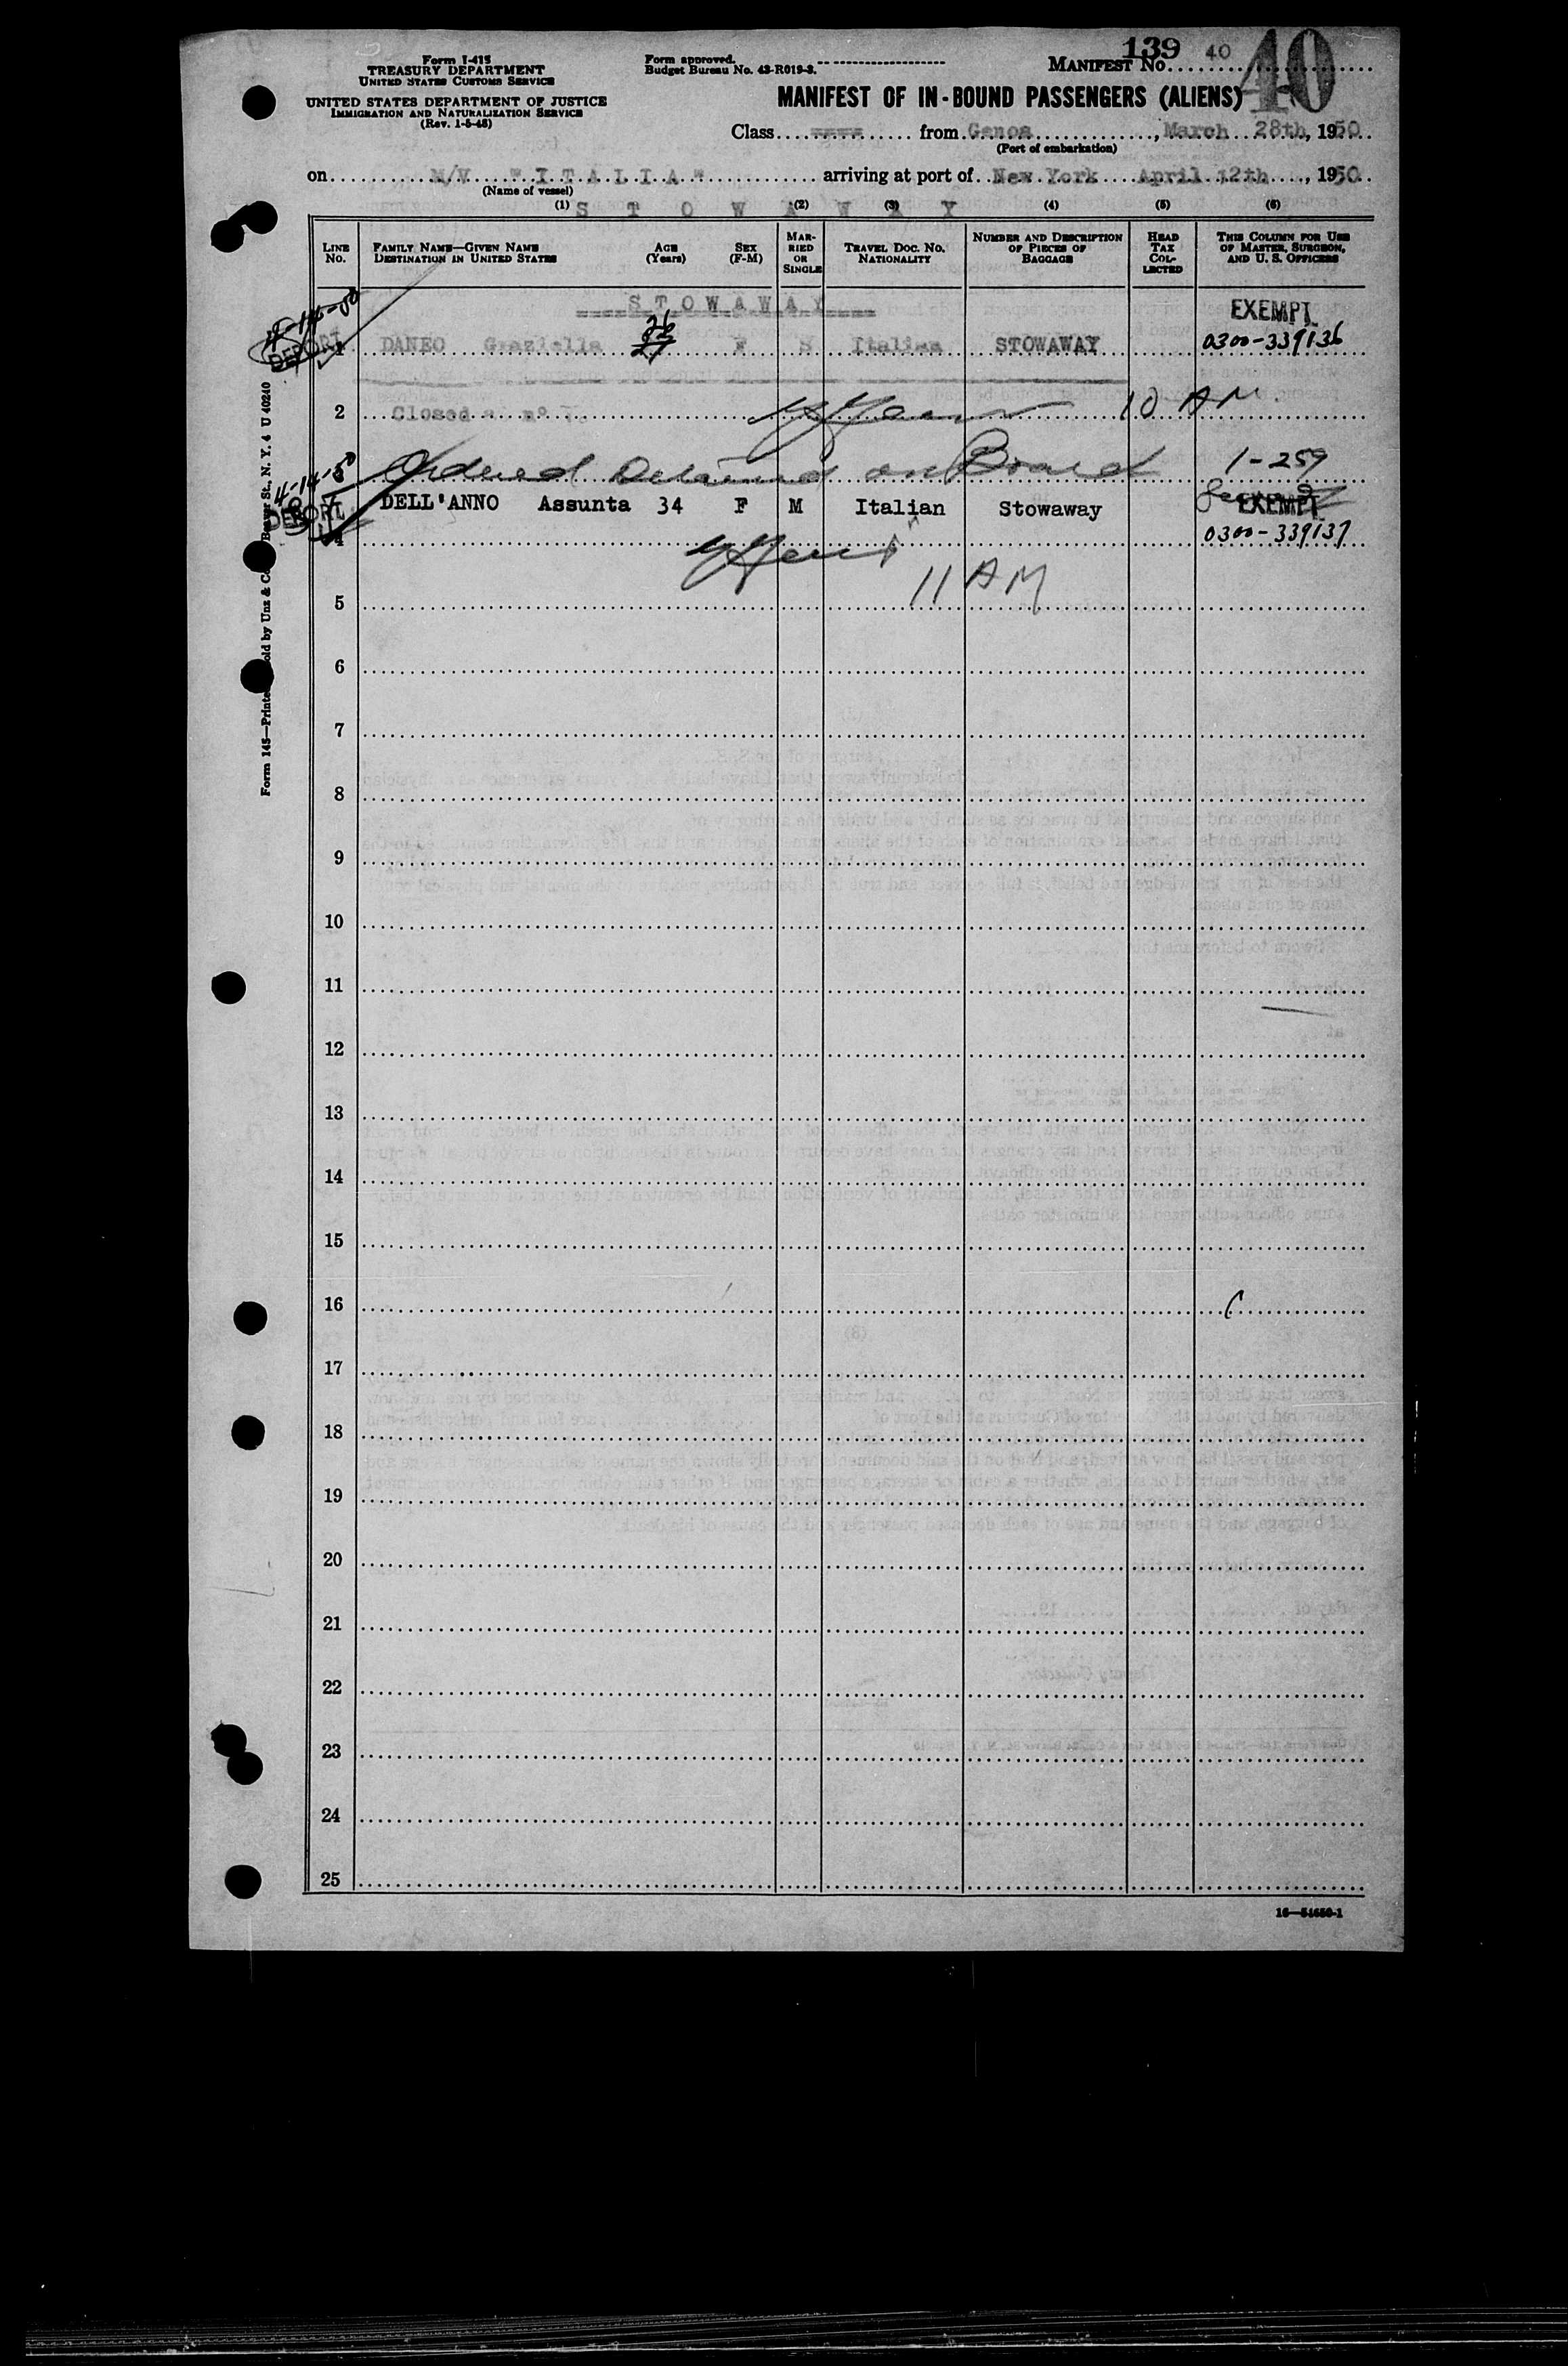 139 40 40
Form I-415
TREASURY DEPARTMENT
UNITED STATES CUSTOMS SERVICE
UNITED STATES DEPARTMENT OF JUSTICE
IMMIGRATION AND NATURALIZATION SERVICE
(Rev. 1-5-48)
Form approved.
Budget Bureau No. 43-R019-3.
MANIFEST NO.
MANIFEST OF IN-BOUND PASSENGERS (ALIENS)
Class from Genoa, March 28th, 1950
(Port of embarkation)
on M/V "ITALIA" arriving at port of New York April 12th, 1950
(Name of vessel)
(1) (2) (3) (4) (5) (6)
S T O W A W A Y
LINE No. FAMILY NAME—GIVEN NAME DESTINATION IN UNITED STATES AGE (Years) SEX (F-M) MARRIED OR SINGLE TRAVEL DOC. NO. NATIONALITY NUMBER AND DESCRIPTION OF PIECES OF BAGGAGE HEAD TAX COLLECTED THIS COLUMN FOR USE OF MASTER, SURGEON, AND U. S. OFFICERS
S T O W A W A Y
EXEMPT
4-14-50
DEPORT
1 DANEO Graziella 27 F S Italian STOWAWAY 0300-339136
2 Closed 10 AM
Ordered Detained on Board 1-259
4-14-50
DEPORT
DELL'ANNO Assunta 34 F M Italian Stowaway EXEMPT
4 0300-339137
11 AM
5
6
7
8
9
10
11
12
13
14
15
16
17
18
19
20
21
22
23
24
25
16—54650-1